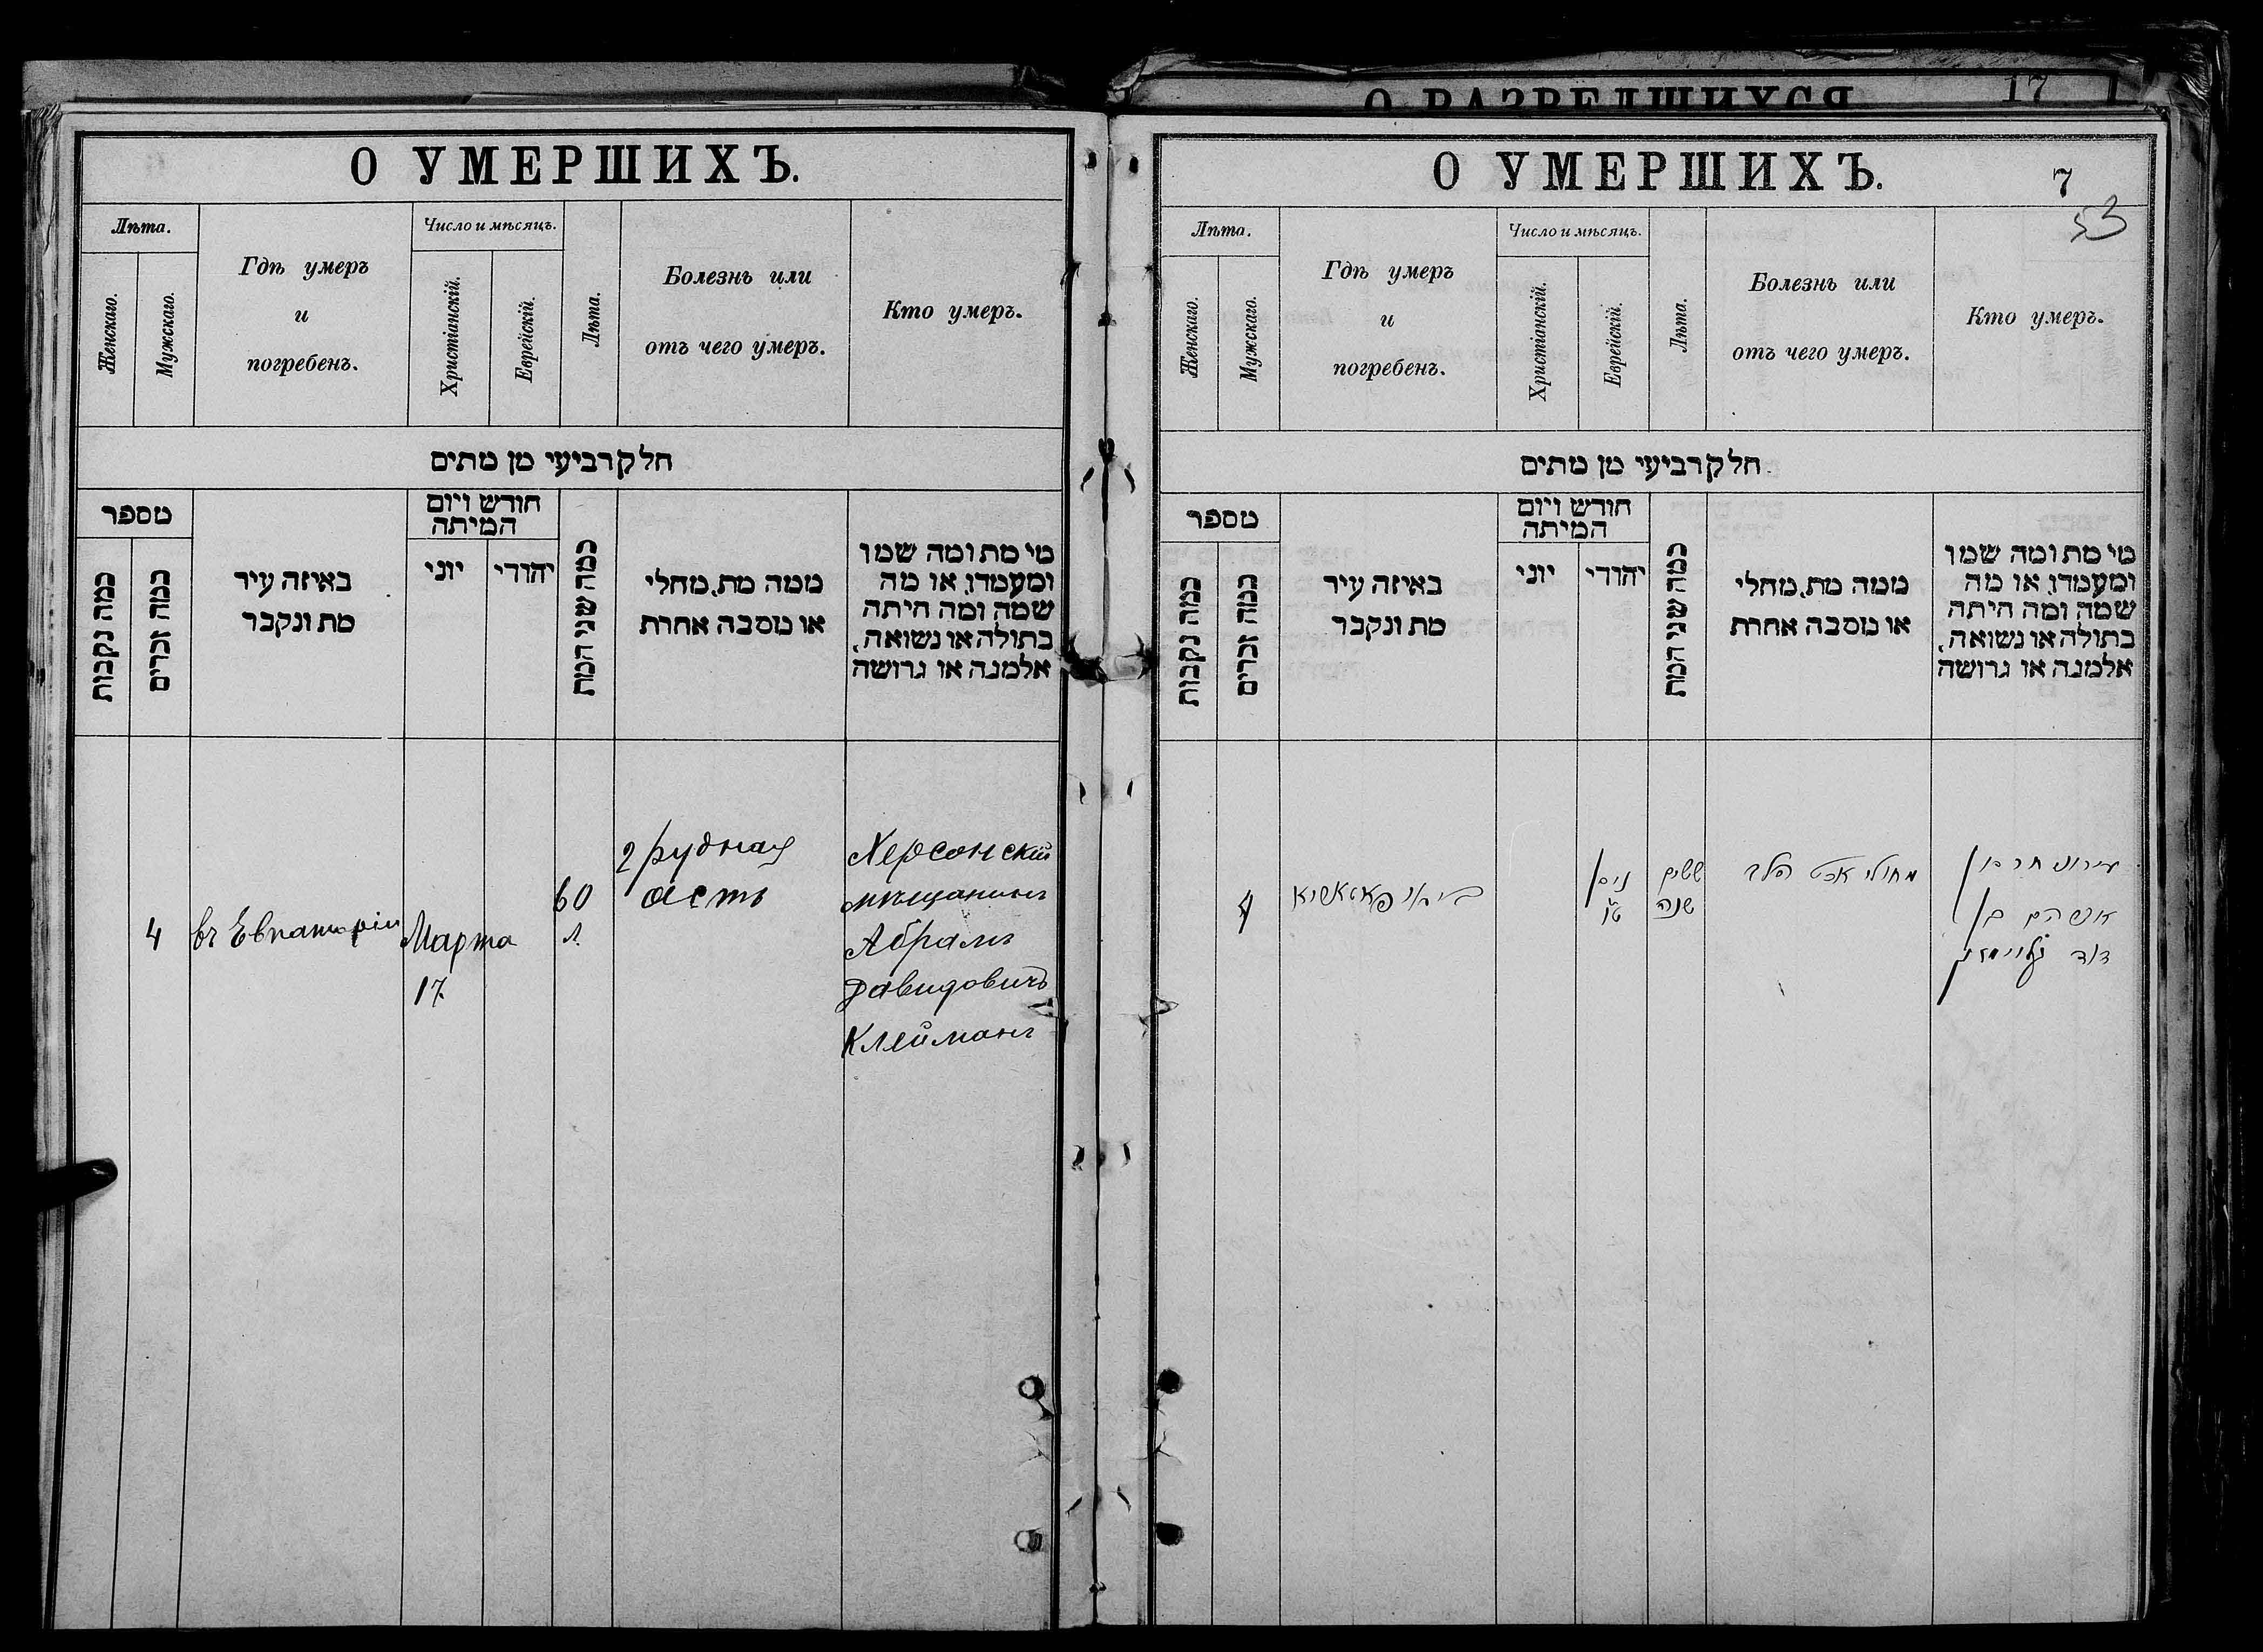 О УМЕРШИХЪ.
Лѣта.
Женскаго.
Мужскаго.
Гдѣ умеръ
и
погребенъ.
Число и мѣсяцъ.
Христіанскій.
Еврейскій.
Лѣта.
Болезнь или
отъ чего умеръ.
Кто умеръ.
חלק רביעי מן מתים
מספר
כמה נקבות
כמה זכרים
באיזה עיר
מת ונקבר
חודש ויום
המיתה
יוני
יהודי
כמה שני המת
ממה מת, מחלי
או מסבה אחרת
מי מת ומה שמו
ומעמדו, או מה
שמה ומה היתה
בתולה או נשואה,
אלמנה או גרושה
4
въ Евпаторіи
Марта
17.
60
л.
грудная
астъ
Херсонскій
мѣщанинъ
Абрамъ
Давидовичъ
Клейманъ
О РАЗВЕДШИХСЯ
17
О УМЕРШИХЪ.
7
53
Лѣта.
Женскаго.
Мужскаго.
Гдѣ умеръ
и
погребенъ.
Число и мѣсяцъ.
Христіанскій.
Еврейскій.
Лѣта.
Болезнь или
отъ чего умеръ.
Кто умеръ.
חלק רביעי מן מתים
מספר
כמה נקבות
כמה זכרים
באיזה עיר
מת ונקבר
חודש ויום
המיתה
יוני
יהודי
כמה שני המת
ממה מת, מחלי
או מסבה אחרת
מי מת ומה שמו
ומעמדו, או מה
שמה ומה היתה
בתולה או נשואה,
אלמנה או גרושה
4
ניסן
ששים
שנה
מחולי הלב
בן
דוד